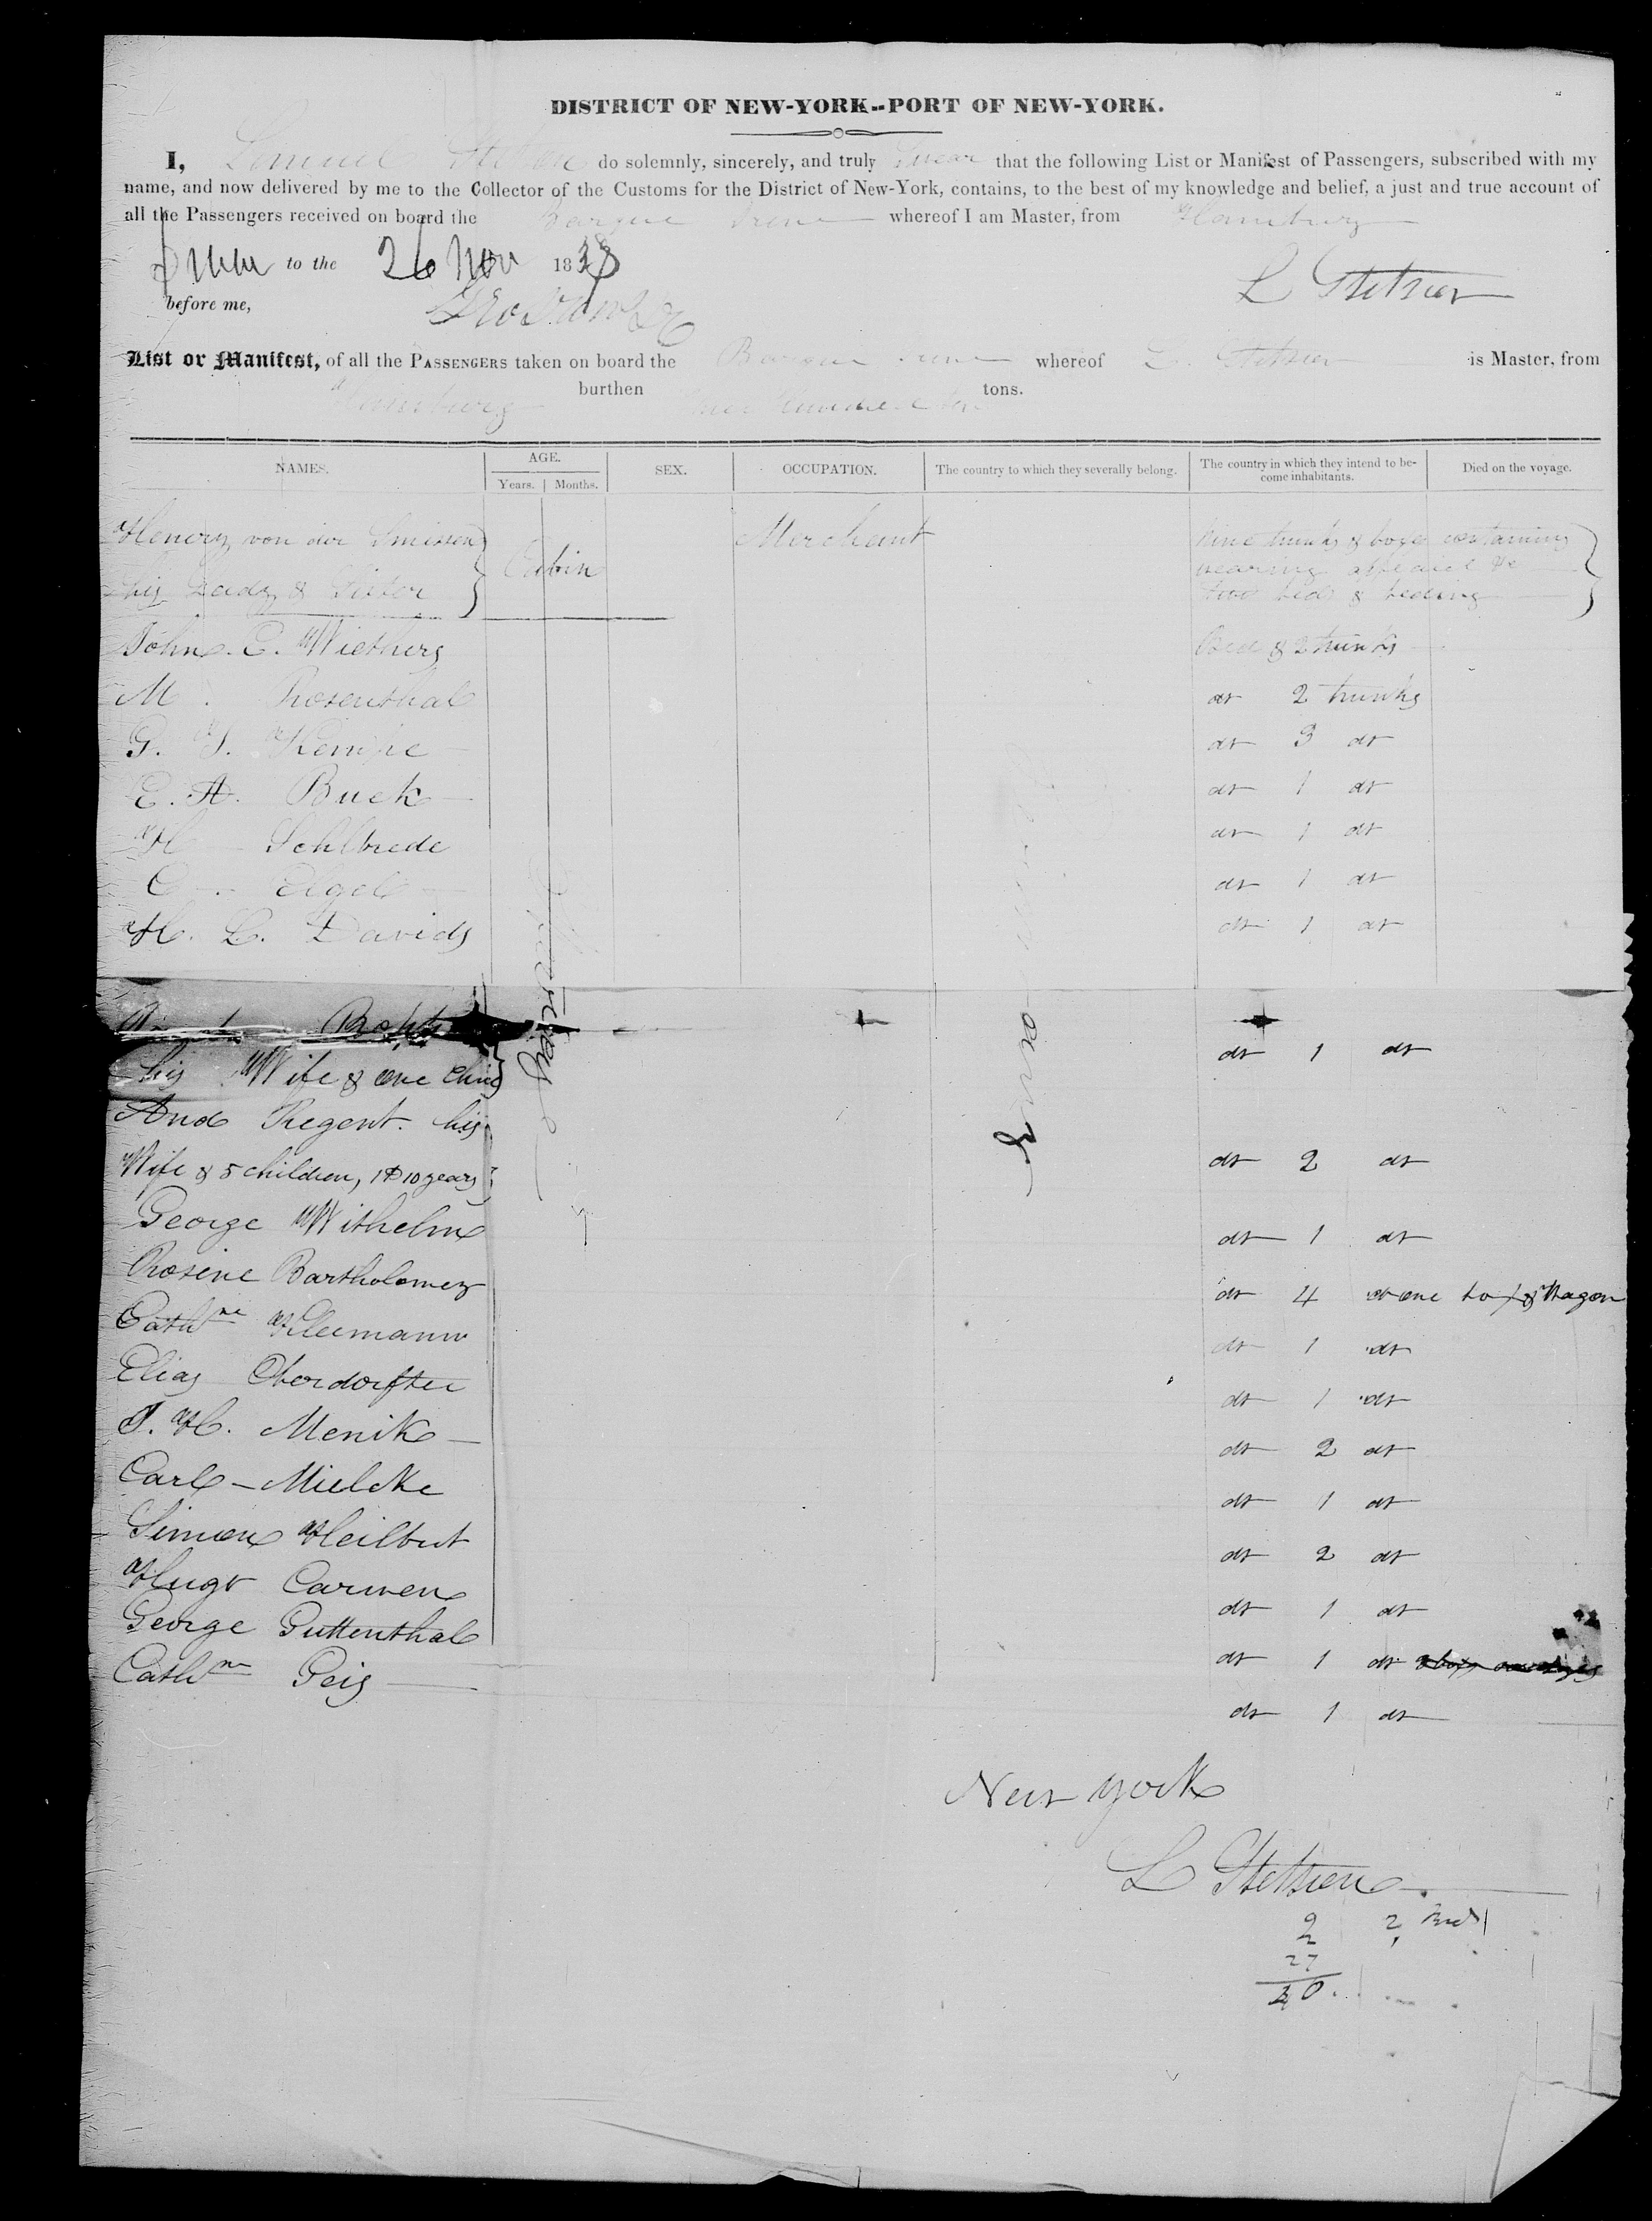 DISTRICT OF NEW-YORK--PORT OF NEW-YORK.
I, do solemnly, sincerely, and truly Swear that the following List or Manifest of Passengers, subscribed with my
name, and now delivered by me to the Collector of the Customs for the District of New-York, contains, to the best of my knowledge and belief, a just and true account of
all the Passengers received on board the Barque Irene whereof I am Master, from Hamburg
Sworn to the 26 Nov 1838
L Stetson
before me,
List or Manifest, of all the PASSENGERS taken on board the Barque Irene whereof L. Stetson is Master, from
Hamburg burthen tons.
NAMES. AGE. Years. Months. SEX. OCCUPATION. The country to which they severally belong. The country in which they intend to become inhabitants. Died on the voyage.
Henery von der Smissen Cabin Merchant Nine trunks & boxes containing
wearing apparel &c
his Lady & Sister two beds & beding
John. E. Wiethers Bed & 2 trunks
M. Rosenthal do 2 trunks
G. J. Kempe do 3 do
E. A. Buck do 1 do
H Sehlbrede do 1 do
C Elgel do 1 do
H. L. Davids do 1 do
his Wife & one child do 1 do
And Regent. his
Wife & 5 children, 1 to 10 years do 2 do
George Wilhelm do 1 do
Rosine Bartholomey do 4 do one box & Wagon
Cathne Kleemann do 1 do
Elias Oberdorffer do 1 do
J. H. Menik do 2 do
Carl Mielcke do 1 do
Simon Heilbut do 2 do
Hugo Carmen do 1 do
George Guttenthal do 1 do
Cathne Geis do 1 do
New York
L Stetson
2
27